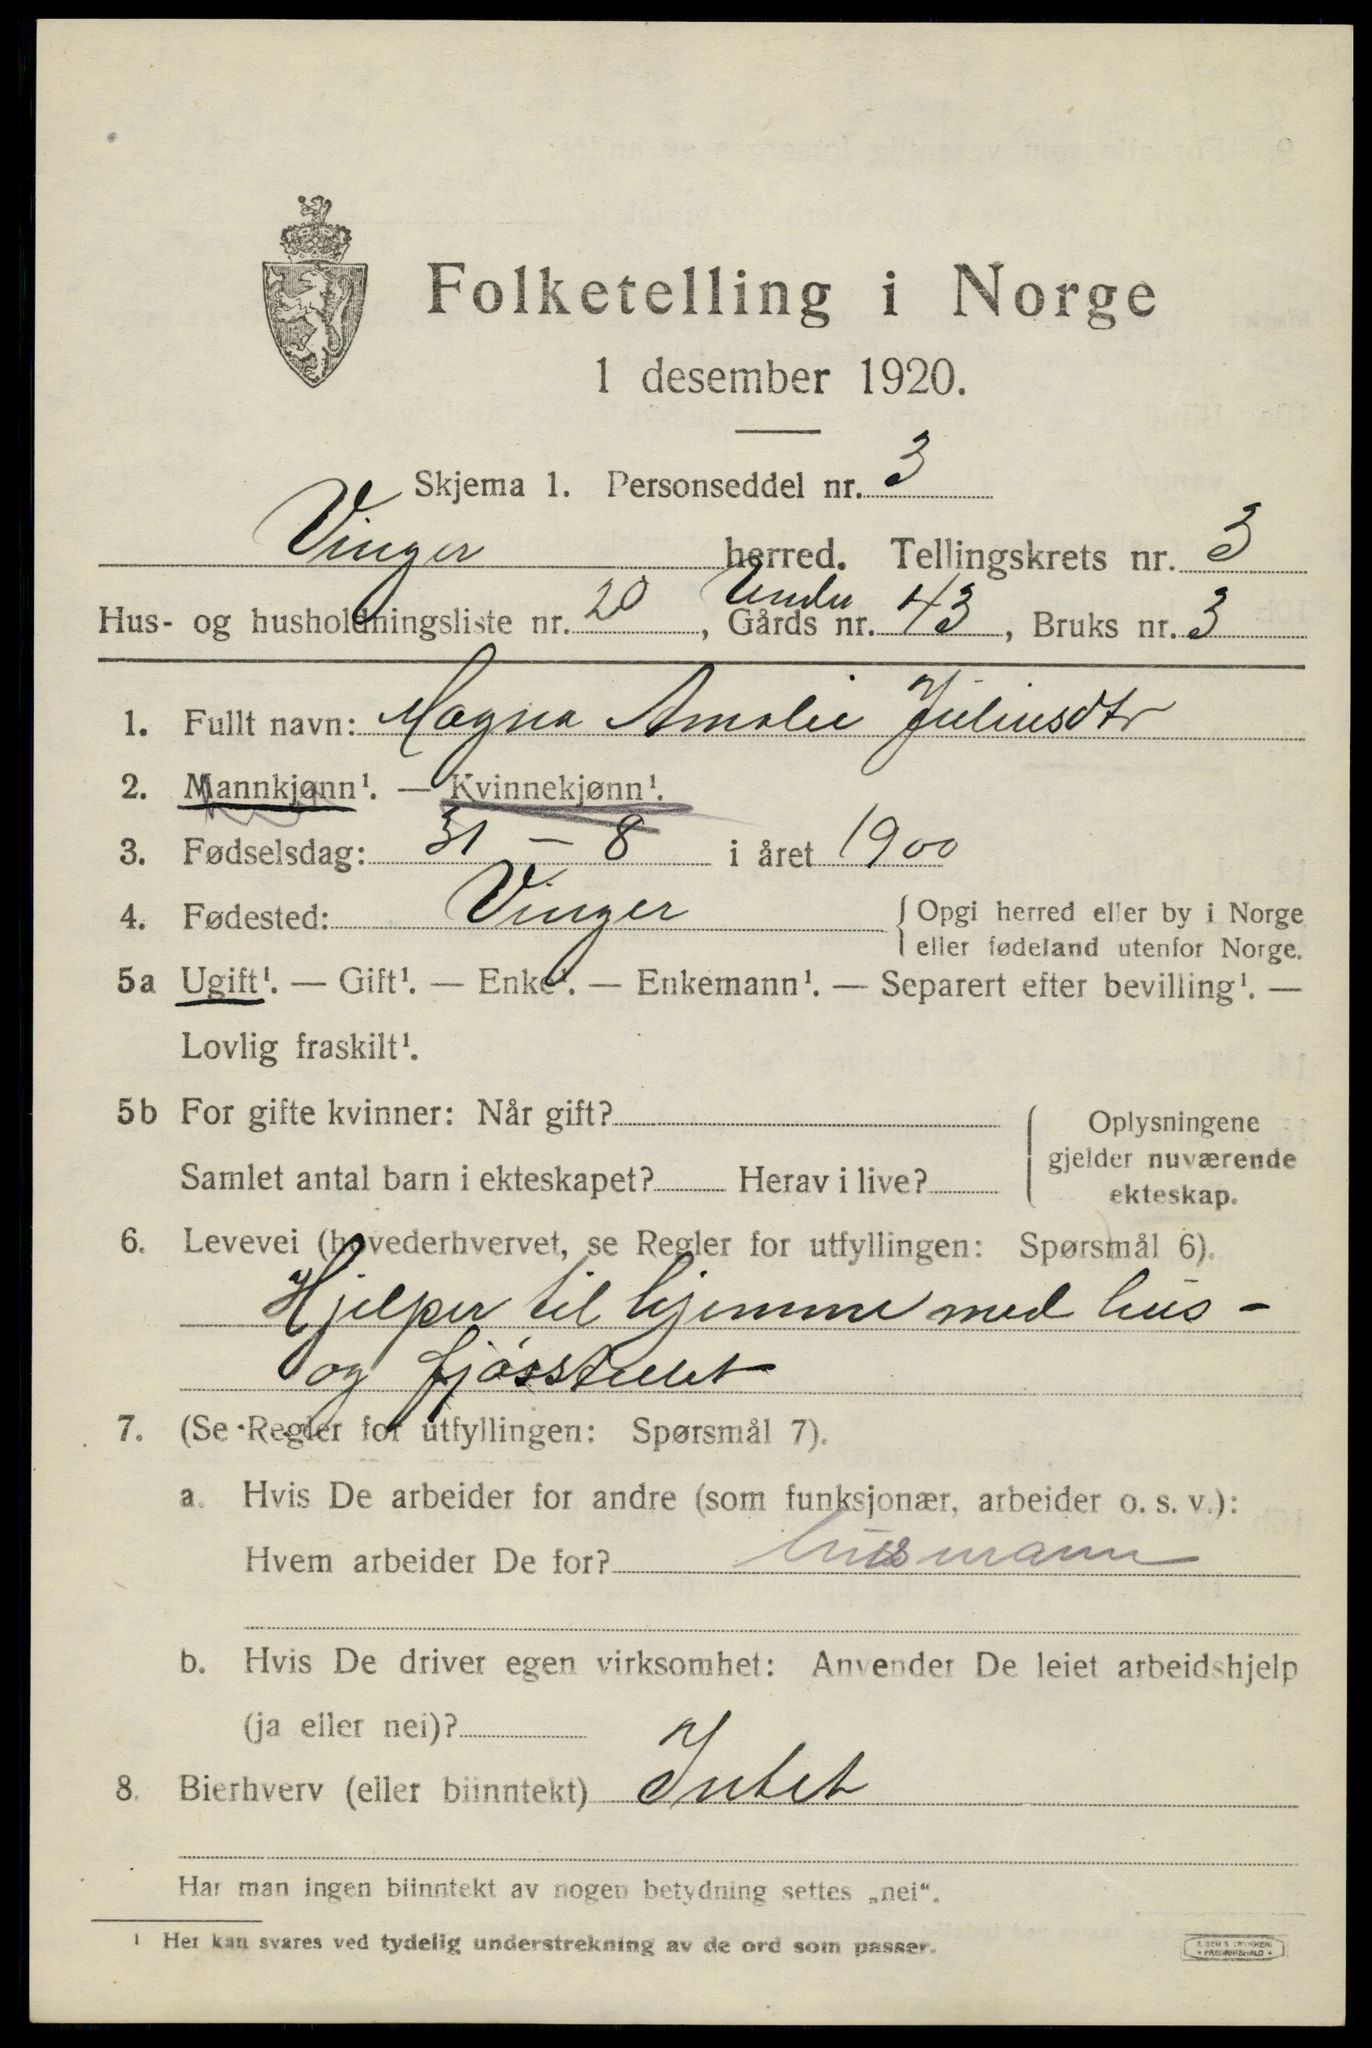 Folketelling i Norge
1 desember 1920.
Skjema 1. Personseddel nr. 3
Vinger herred. Tellingskrets nr. 3
Under
Hus- og husholdningsliste nr. 20, Gårds nr. 43, Bruks nr. 3
1. Fullt navn: Magna Amalie Juliusdtr
2. Mannkjønn¹. — Kvinnekjønn¹.
3. Fødselsdag: 31 – 8 i året 1900
4. Fødested: Vinger { Opgi herred eller by i Norge
eller fødeland utenfor Norge.
5a Ugift¹. — Gift¹. — Enke¹. — Enkemann¹. — Separert efter bevilling¹. —
Lovlig fraskilt¹.
5b For gifte kvinner: Når gift?
Samlet antal barn i ekteskapet? Herav i live?
Oplysningene
gjelder nuværende
ekteskap.
6. Levevei (hovederhvervet, se Regler for utfyllingen: Spørsmål 6).
Hjelper til hjemme med hus-
og fjøsstellet
7. (Se Regler for utfyllingen: Spørsmål 7).
a. Hvis De arbeider for andre (som funksjonær, arbeider o. s. v.):
Hvem arbeider De for? husmann
b. Hvis De driver egen virksomhet: Anvender De leiet arbeidshjelp
(ja eller nei)?
8. Bierhverv (eller biinntekt) Intet
Har man ingen biinntekt av nogen betydning settes „nei“.
¹ Her kan svares ved tydelig understrekning av de ord som passer.